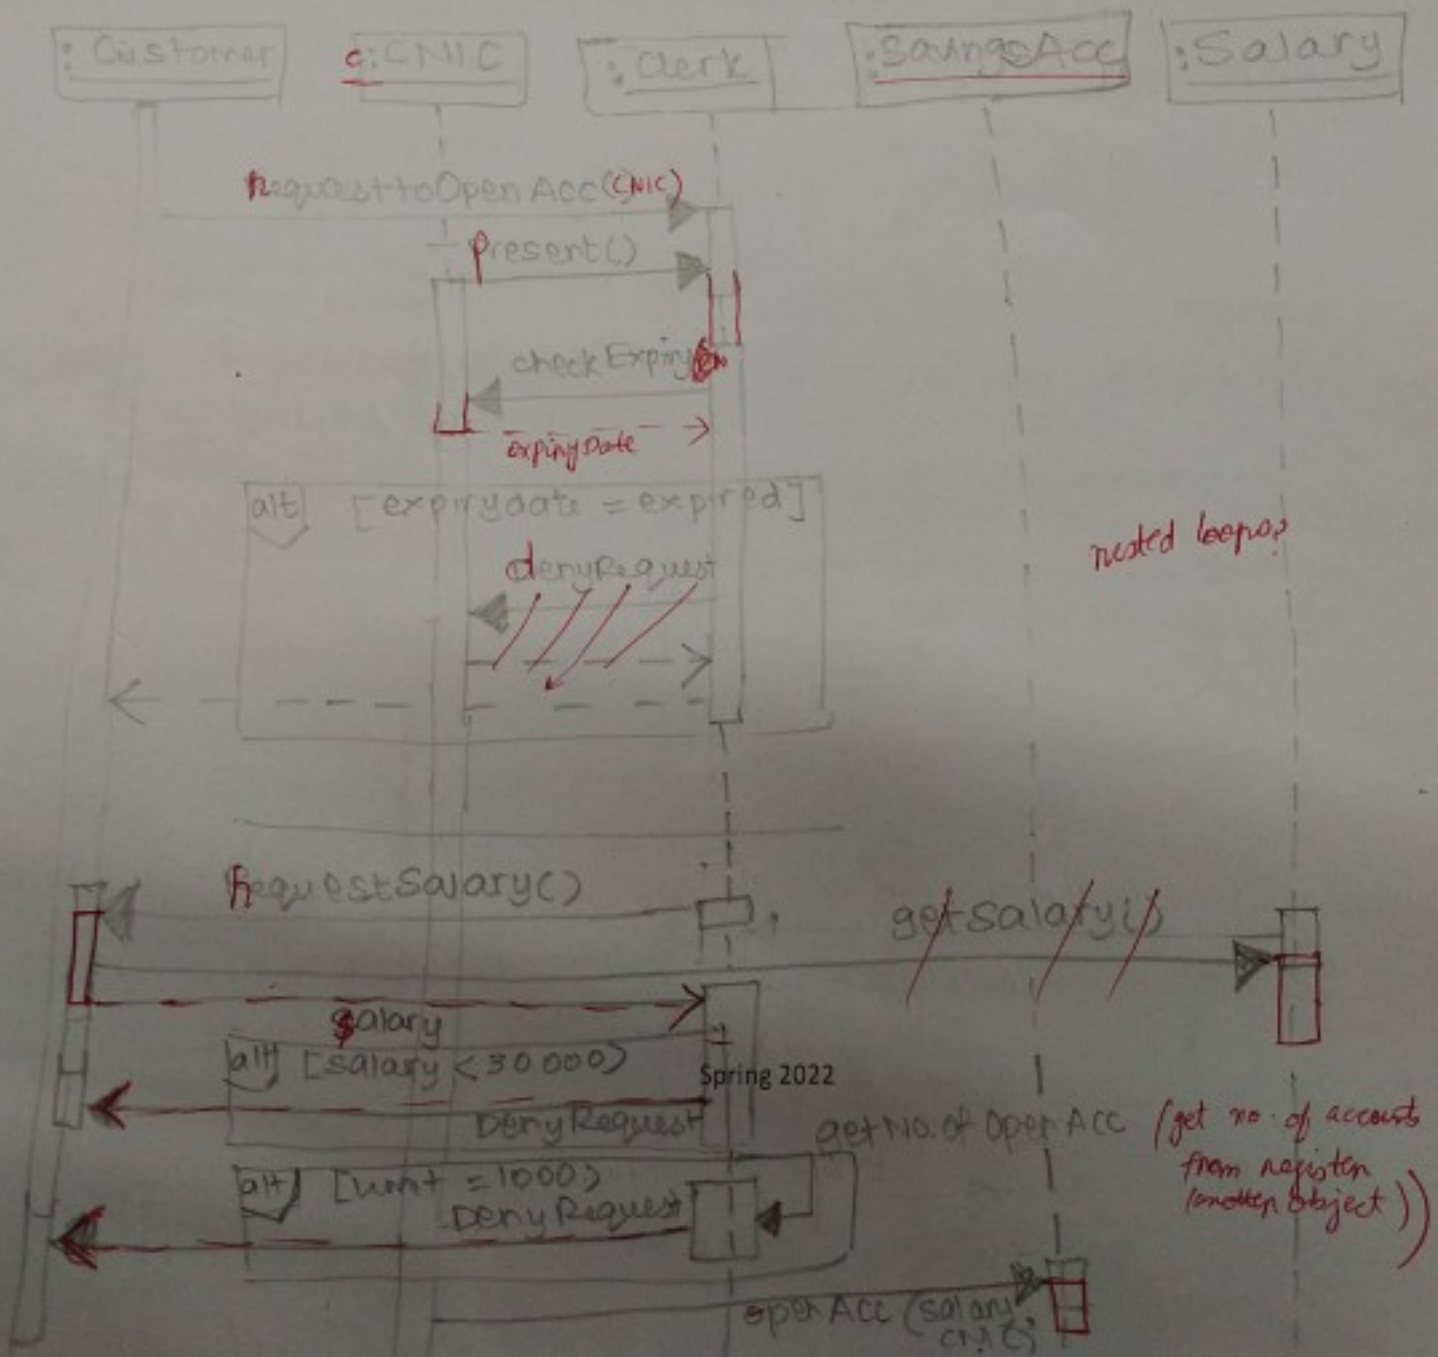 :Customer
c:CNIC
:Clerk
:SavingsAcc
:Salary
RequesttoOpenAcc(CNIC)
present()
checkExpiry
expiryDate
alt [expirydate = expired]
denyRequest
nested loops?
RequestSalary()
getSalary()
salary
alt [salary < 30000)
Spring 2022
DenyRequest
getNo.of Open Acc (get no. of accounts
from register
(another object))
alt [limit = 1000)
DenyRequest
openAcc (salary,
CNIC)